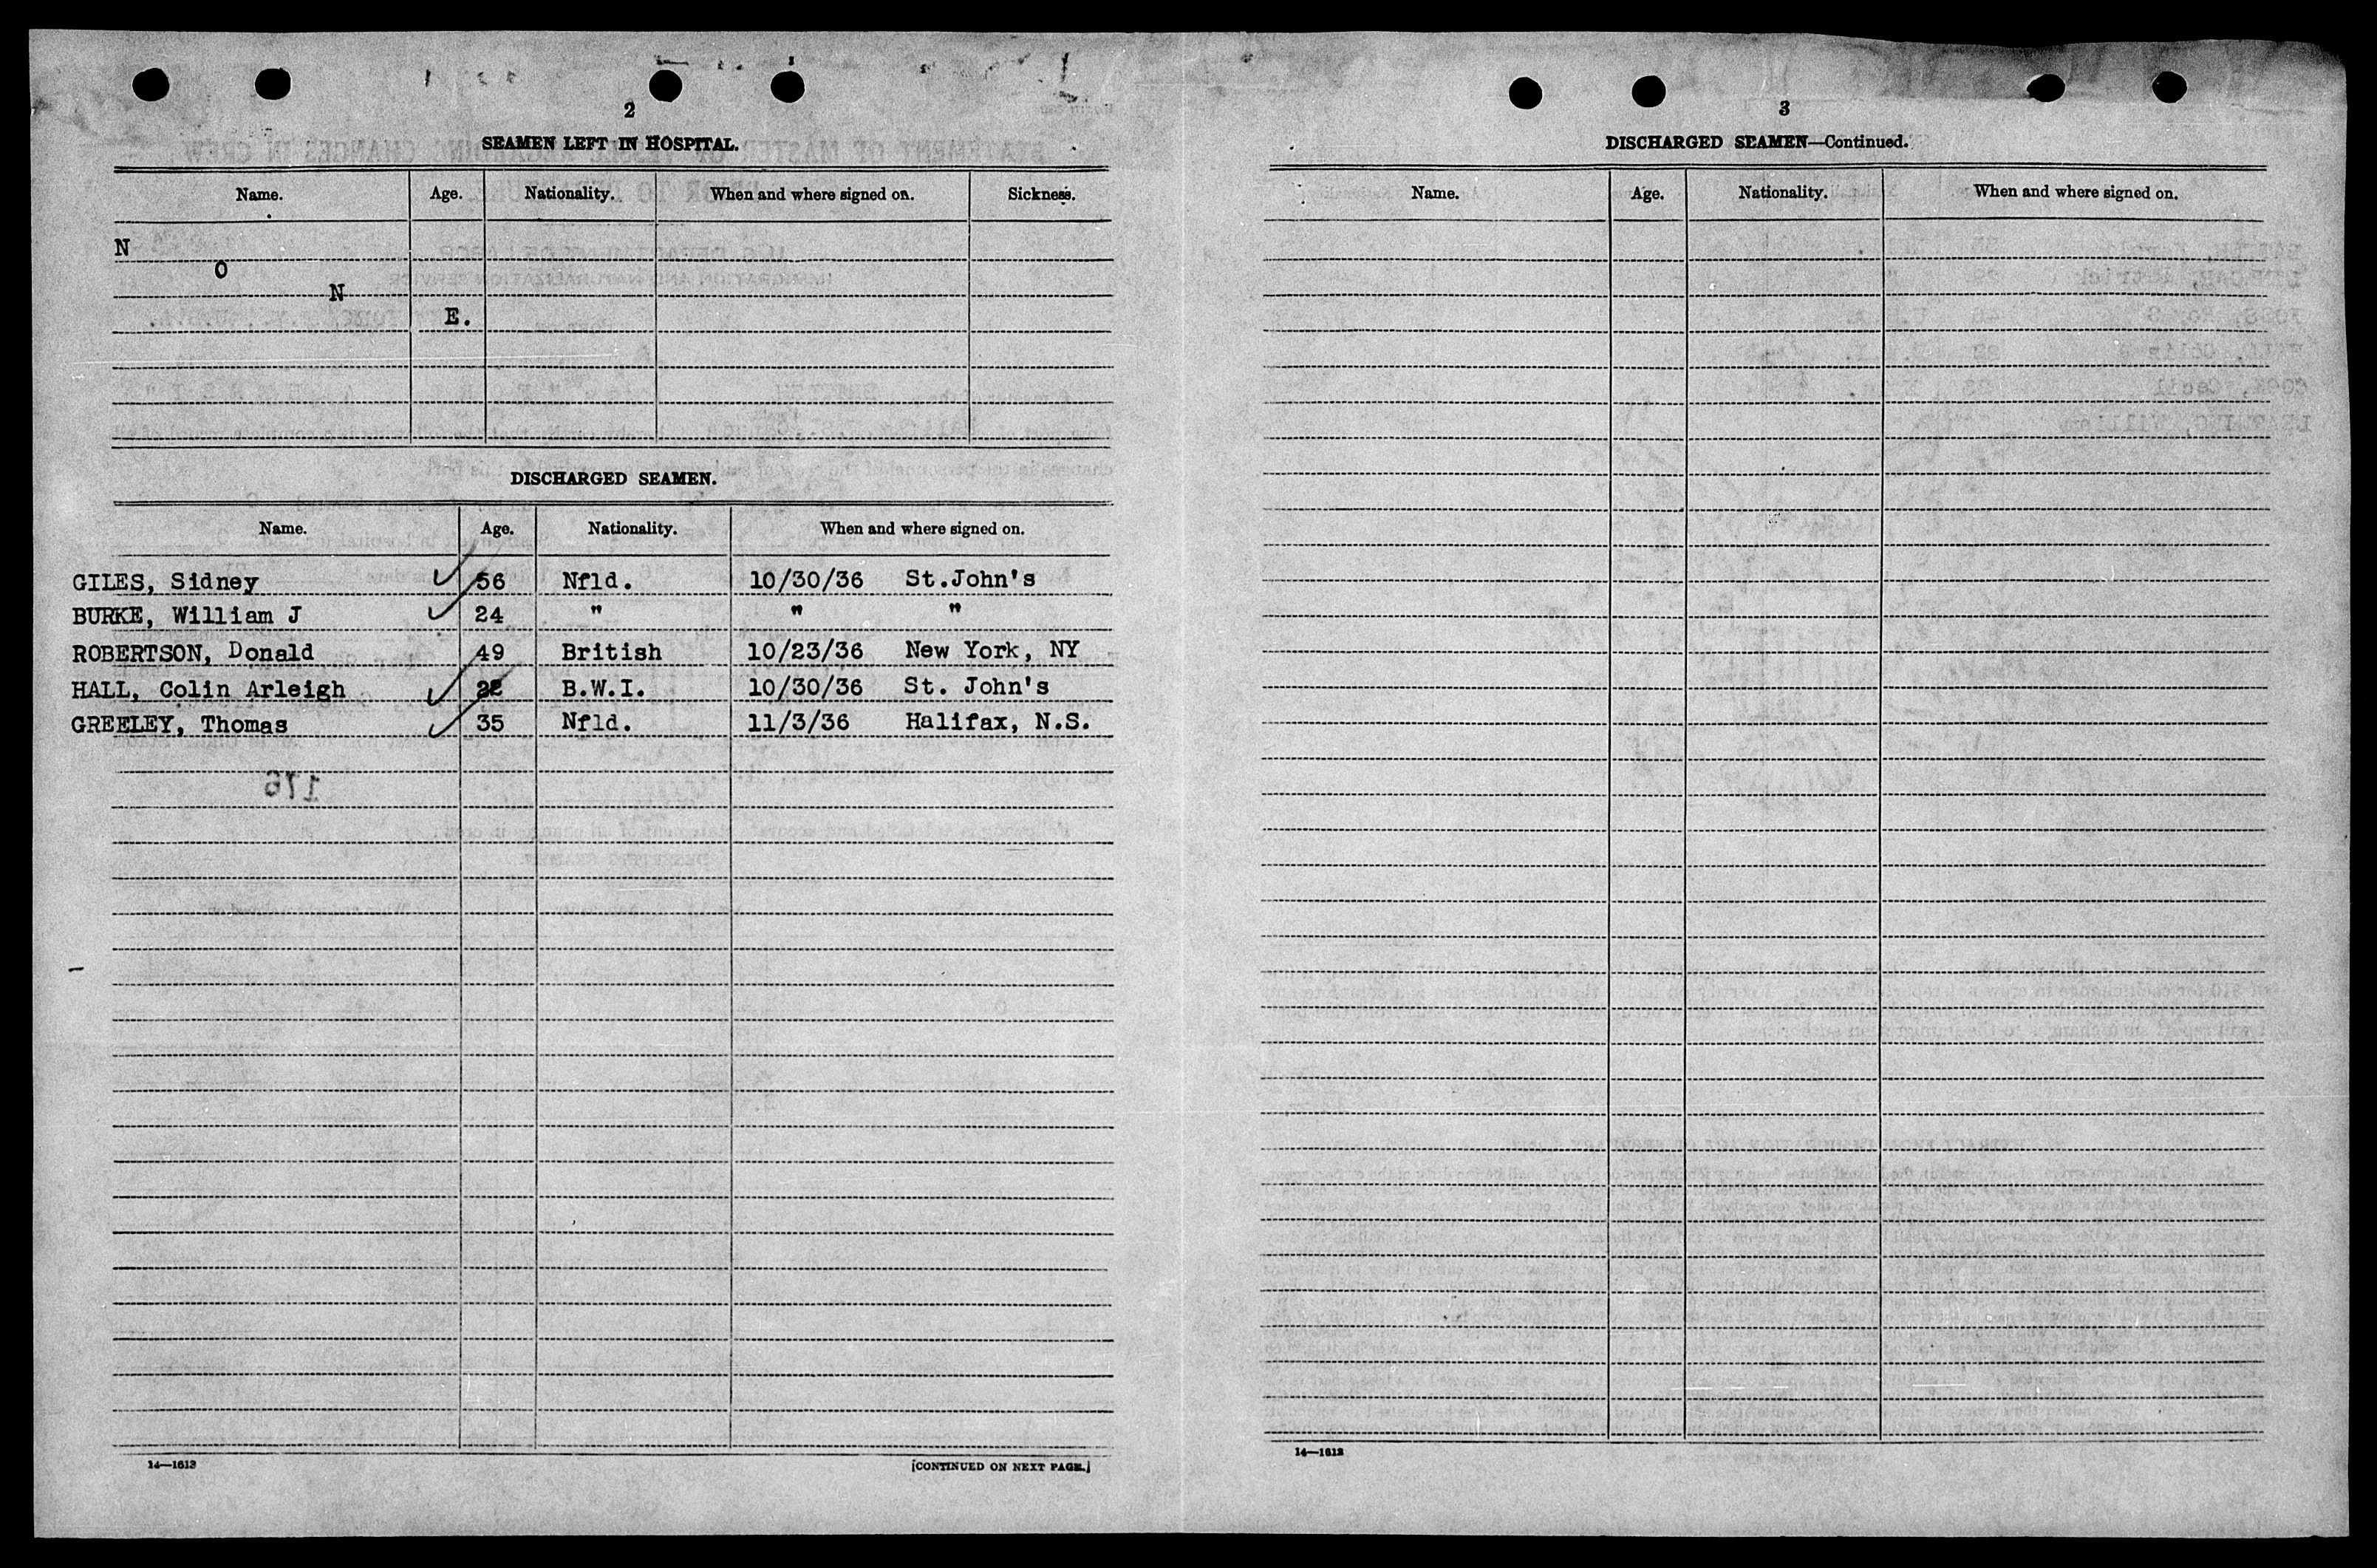 2
SEAMEN LEFT IN HOSPITAL.
Name. Age. Nationality. When and where signed on. Sickness.
N
O
N
E.
DISCHARGED SEAMEN.
Name. Age. Nationality. When and where signed on.
GILES, Sidney 56 Nfld. 10/30/36 St.John's
BURKE, William J 24 " " "
ROBERTSON, Donald 49 British 10/23/36 New York, NY
HALL, Colin Arleigh 22 B.W.I. 10/30/36 St. John's
GREELEY, Thomas 35 Nfld. 11/3/36 Halifax, N.S.
176
14—1613
[CONTINUED ON NEXT PAGE.]
3
DISCHARGED SEAMEN—Continued.
Name. Age. Nationality. When and where signed on.
14—1613